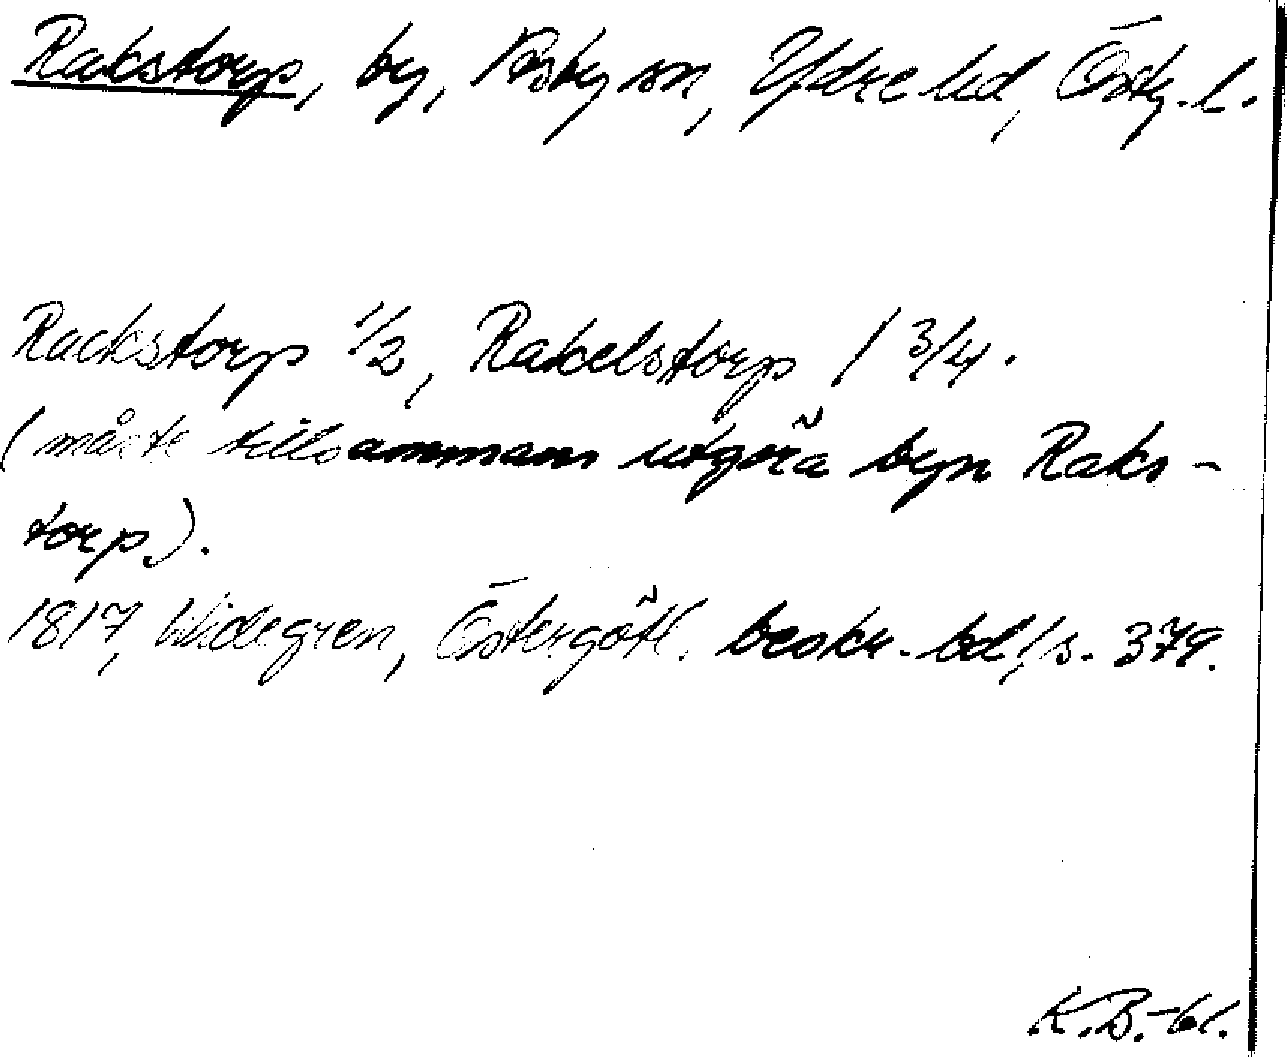 Rakstorp, by, Asby sn, Ydre hd, Östg. l.
Rackstorp 1/2, Rakelstorp 1 3/4.
(måste tillsammans utgöra byn Raks-
torp).
1817, Widegren, Östergötl. beskr. bd 1, s. 379.
K.B.-61.